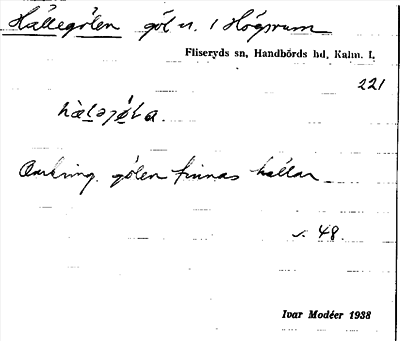 Hällegölen göl n. i Högsrum
Fliseryds sn, Handbörds hd, Kalm. l.
221
Omkring gölen finnas hällar
s. 48.
Ivar Modéer 1938